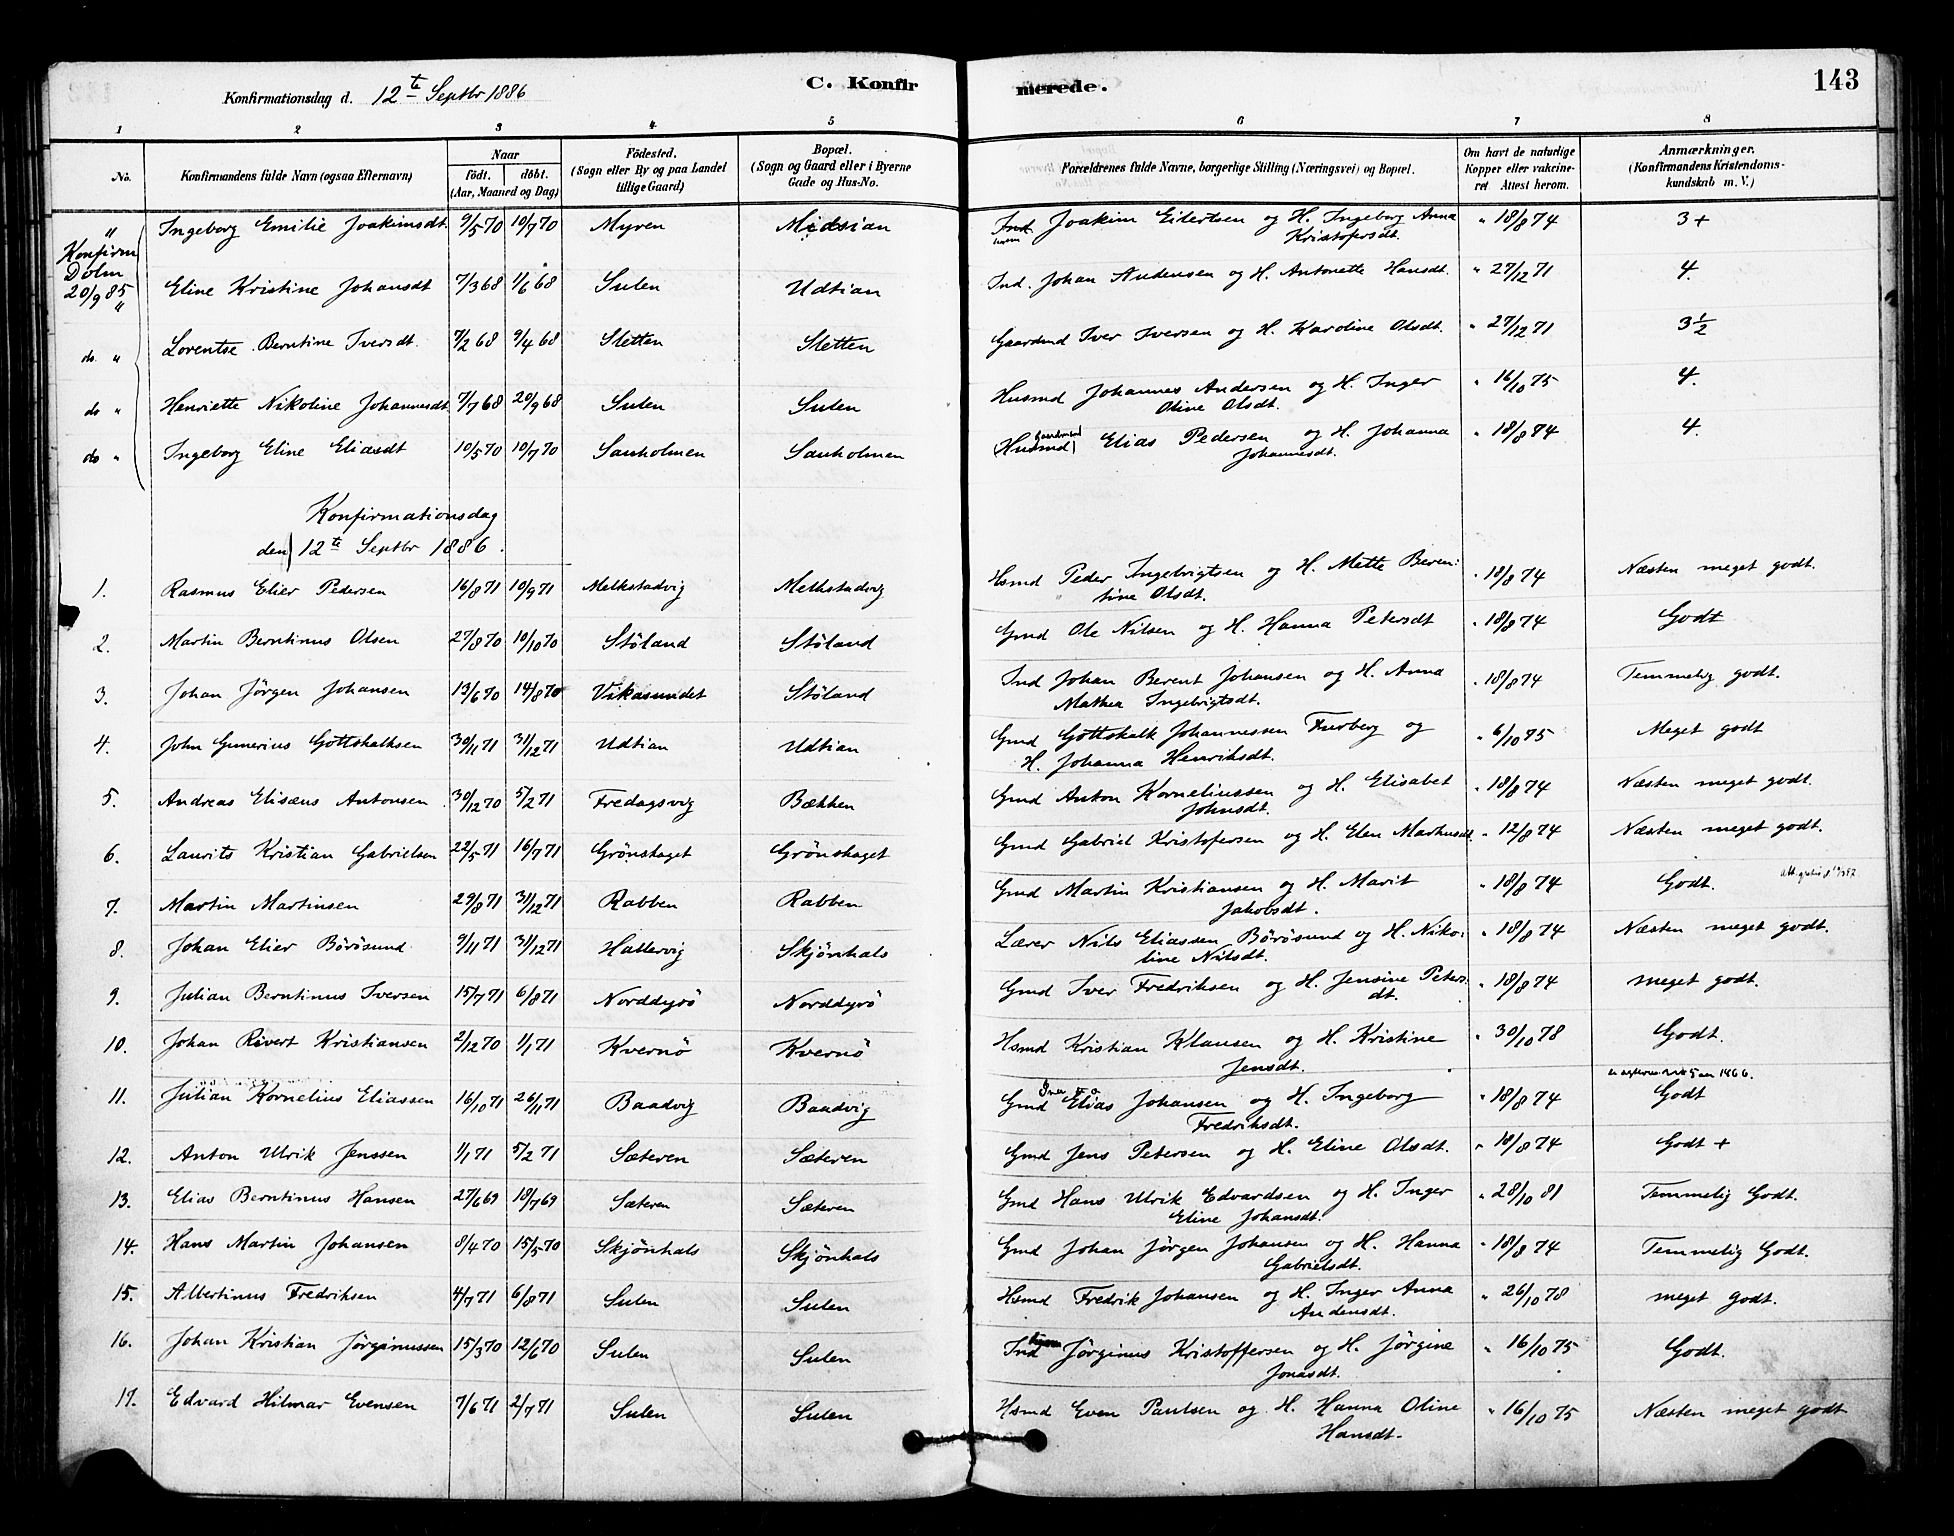 143
Konfirmationsdag d. 12te Septbr 1886 C. Konfirmerede.
1 2 3 4 5 6 7 8
No. Konfirmandens fulde Navn (ogsaa Efternavn) Naar født. døbt. (Aar, Maaned og Dag) Födested. (Sogn eller By og paa Landet tillige Gaard) Bopæl. (Sogn og Gaard eller i Byerne Gade og Hus-No. Forældrenes fulde Navne, borgerlige Stilling (Næringsvei) og Bopæl. Om havt de naturlige Kopper eller vakcineret Attest herom. Anmærkninger. (Konfirmandens Kristendomskundskab m. V.)
" Konfirm Dolm 20/9 85 " Ingeborg Emilie Joakimsdt. 9/5 70 10/7 70 Myren Midtsian Ind. Joakim Eilertsen og H. Ingeborg Anna Kristofersdt. " 18/8 74 3+
Eline Kristine Johansdt 7/3 68 1/6 68 Sulen Udtian Ind. Johan Andersen og H. Antonette Hansdt. " 27/12 71 4.
do " Lorentse Berntine Iversdt. 7/2 68 9/4 68 Sletten Sletten Gaardmd Iver Iversen og H. Karoline Olsdt. " 27/12 71 3 1/2
do " Henriette Nikoline Johannesdt 7/7 68 20/9 68 Sulen Sulen Husmd Johannes Andersen og H. Inger Oline Olsdt. " 16/10 75 4.
do " Ingeborg Eline Eliasdt 10/5 70 10/7 70 Sauholmen Sauholmen (Husmd) Gaardmand Elias Pedersen og H. Johanna Johannesdt. " 18/8 74 4.
Konfirmationsdag
den 12te Septbr 1886.
1. Rasmus Elier Pedersen 16/8 71 10/9 71 Melkstadvig Melkstadvig Hsmd Peder Ingebrigtsen og H. Mette Berentine Olsdt. " 18/8 74 Næsten meget godt.
2. Martin Berntinus Olsen 27/8 70 10/10 70 Støland Støland Gmd Ole Nilsen og H. Hanna Petersdt " 18/8 74 Godt
3. Johan Jörgen Johansen 13/6 70 14/8 70 Vikasundet Støland Ind Johan Berent Johansen og H. Anna Mathea Ingebrigtsdt. " 18/8 74 Temmelig godt.
4. John Gunerius Gottskalksen 30/11 71 31/12 71 Udtian Udtian Gmd Gottskalk Johannessen Furberg og H. Johanna Henriksdt. " 6/10 75 Meget godt
5. Andreas Elisæus Antonsen 30/12 70 5/2 71 Fredagsvig Bækken Gmd Anton Korneliussen og H. Elisabet Johnsdt. " 18/8 74 Næsten meget godt.
6. Laurits Kristian Gabrielsen 22/5 71 16/7 71 Grönskaget Grönskaget Gmd Gabriel Kristofersen og H. Elen Markusdt. " 12/8 74 Næsten meget godt.
7. Martin Martinsen 29/8 71 31/12 71 Rabben Rabben Gmd Martin Kristiansen og H. Marit Jakobsdt. " 18/8 74 Godt.
8. Johan Elier Börösund 9/11 71 31/12 71 Hattervig Skjönhals Lærer Nils Eliassen Börösund og H. Nikoline Nilsdt. " 18/8 74 Næsten meget godt.
9. Julian Berntinus Iversen 15/7 71 6/8 71 Norddyrö Norddyrö Gmd Iver Fredriksen og H. Jensine Petersdt. " 18/8 74 meget godt.
10. Johan Rivert Kristiansen 2/12 70 1/1 71 Kvernö Kvernö Hsmd Kristian Klausen og H. Kristine Jensdt. " 30/10 78 Godt.
11. Julian Kornelius Eliassen 16/10 71 26/11 71 Baadvig Baadvig Gmd Elias Johansen og H. Ingeborg Fredriksdt. " 18/8 74 Godt
12. Anton Ulrik Jenssen 1/1 71 5/2 71 Sæteren Sæteren Gmd Jens Petersen og H. Eline Olsdt. " 18/8 74 Godt +
13. Elias Berntinus Hansen 27/6 69 18/7 69 Sæteren Sæteren Gmd Hans Ulrik Edvardsen og H. Inger Eline Johansdt. " 28/10 81 Temmelig Godt.
14. Hans Martin Johansen 8/4 70 15/5 70 Skjönhals Skjönhals Gmd Johan Jörgen Johansen og H. Hanna Gabrielsdt. " 18/8 74 Temmelig Godt.
15. Albertinus Fredriksen 4/7 71 6/8 71 Sulen Sulen Hsmd Fredrik Johansen og H. Inger Anna Andersdt. " 26/10 78 meget Godt.
16. Johan Kristian Jörginussen 15/3 70 12/6 70 Sulen Sulen Ind Jörginus Kristoffersen og H. Jörgine Jonasdt. " 16/10 75 Godt.
17. Edvard Hilmar Evensen 7/6 71 2/7 71 Sulen Sulen Hsmd Even Paulsen og H. Hanna Oline Hansdt. " 16/10 75 Næsten meget godt